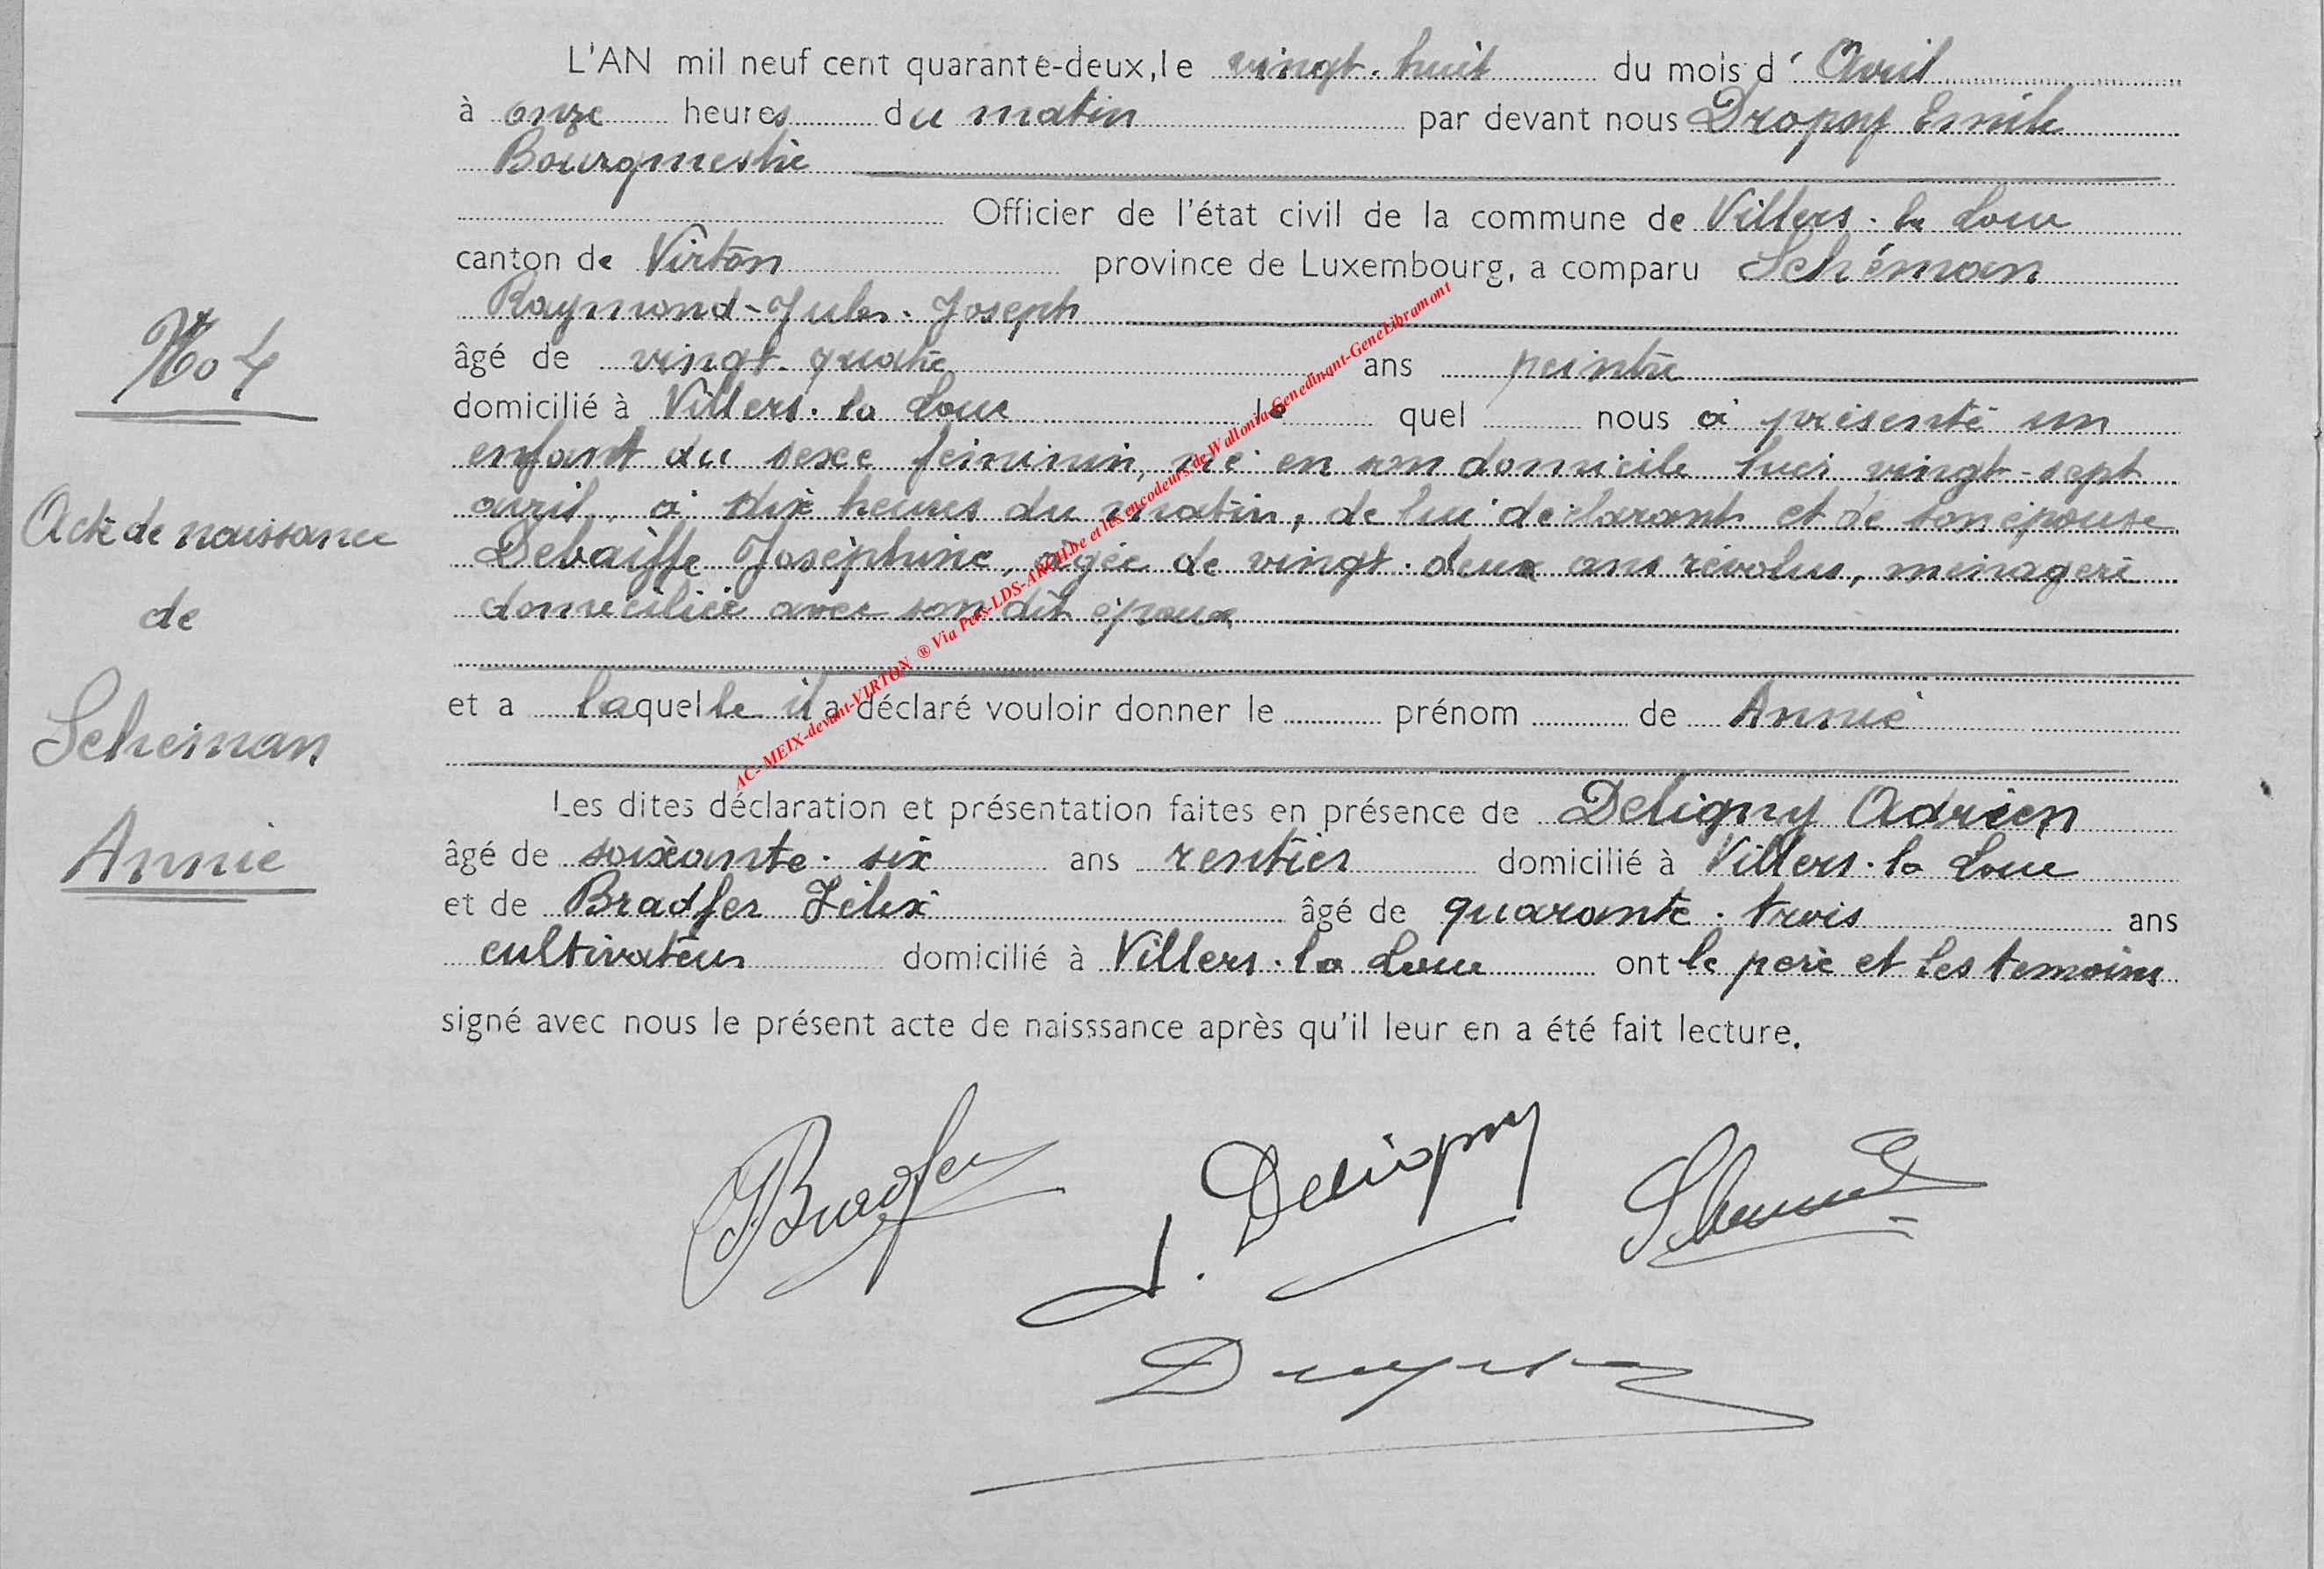 L'AN mil neuf cent quarante-deux, le vingt-huit du mois d' Avril
à onze heures du matin par devant nous Dropsy Emile
Bourgmestre
Officier de l'état civil de la commune de Villers-la Loue
canton de Virton province de Luxembourg, a comparu Schéman
Raymond-Jules-Joseph
No 4
âgé de vingt-quatre ans peintre
domicilié à Villers-la Loue le quel nous a présenté un
enfant du sexe féminin, né en son domicile hier vingt-sept
avril, à dix heures du matin, de lui déclarant et de son épouse
Acte de naissance
Debaiffe Joséphine, âgée de vingt-deux ans révolus, ménagère
de
domiciliée avec son dit époux
Scheman
et a laquelle il a déclaré vouloir donner le prénom de Annie
Annie
Les dites déclaration et présentation faites en présence de Deligny Adrien
âgé de soixante-six ans rentier domicilié à Villers-la Loue
et de Bradfer Félix âgé de quarante-trois ans
cultivateur domicilié à Villers-la Loue ont le père et les témoins
signé avec nous le présent acte de naisssance après qu'il leur en a été fait lecture.
AC- MEIX-devant-VIRTON ® Via Pers-LDS-ARCH.be et les encodeurs de Wallonia-Genedinant-GeneLibramont
Bradfer
Deligny